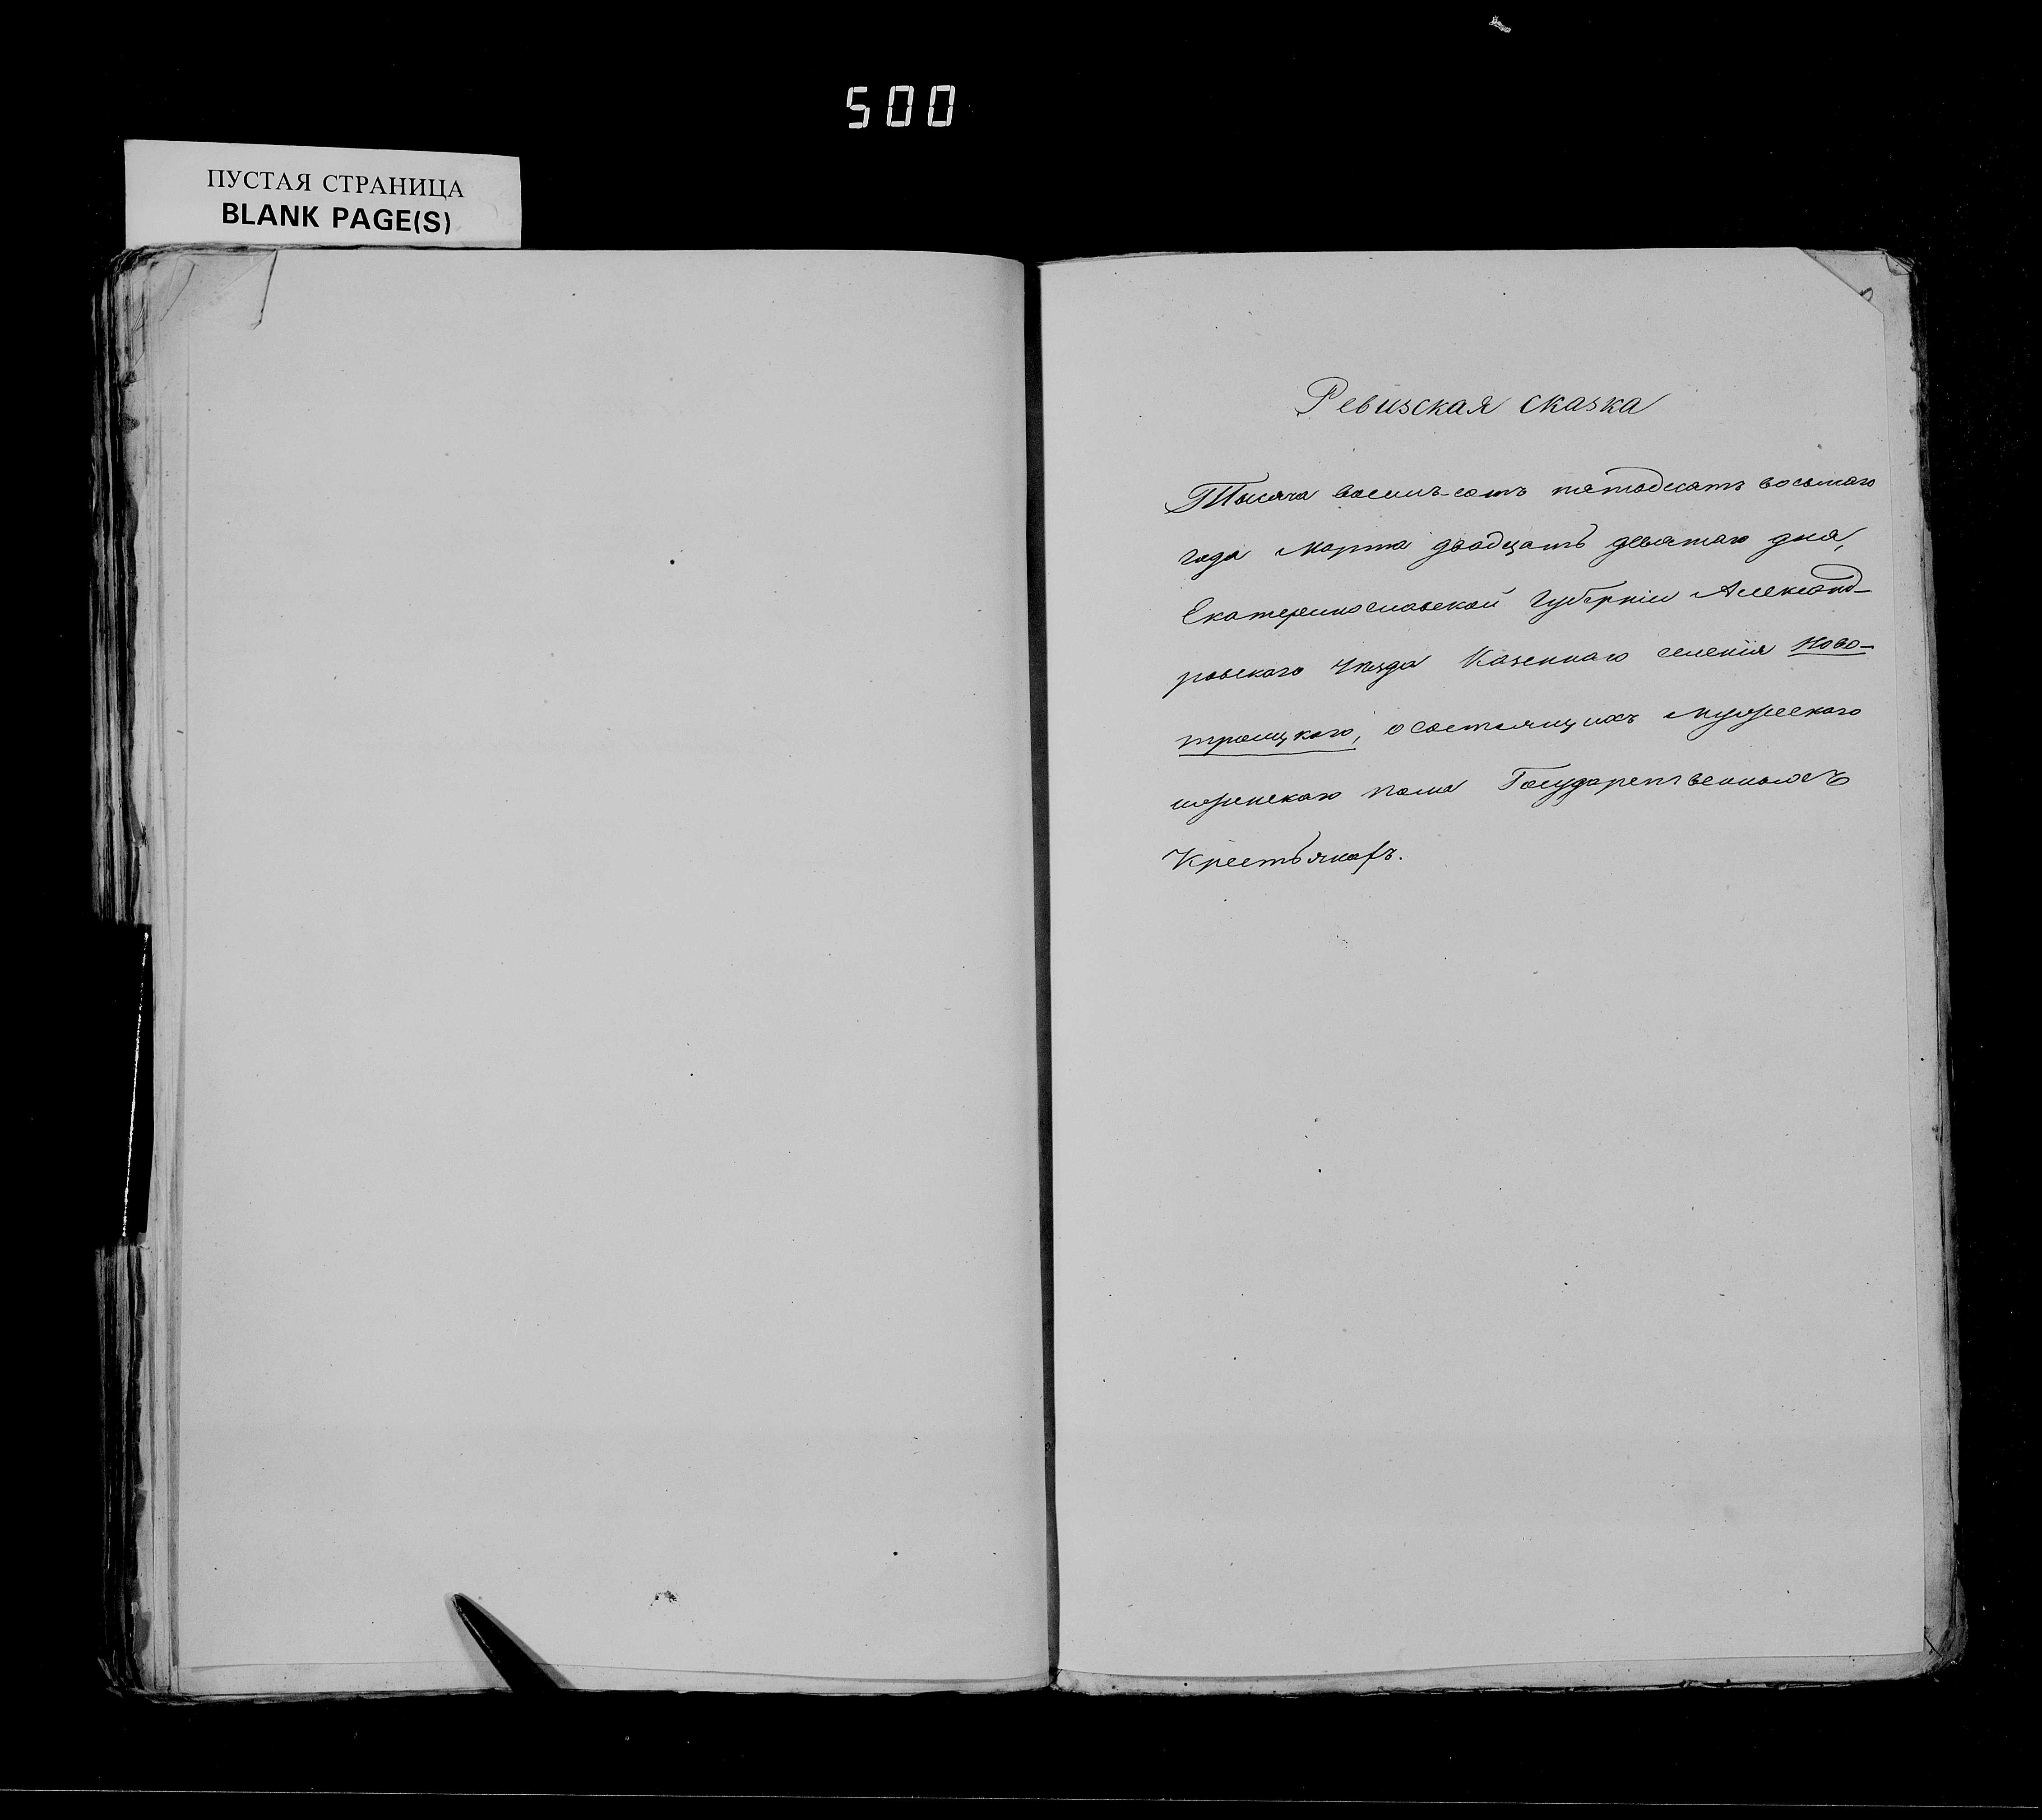 500
ПУСТАЯ СТРАНИЦА
BLANK PAGE(S)
Ревизская сказка
Тысяча восемь-сотъ пятьдесятъ восьмаго
года Марта двадцать девятаго дня,
Екатеринославской Губерніи Александ-
ровскаго Уѣзда Казеннаго селенія Ново-
троицкаго, о состоящихъ мужескаго
и женскаго пола Государственныхъ
Крестьянахъ.